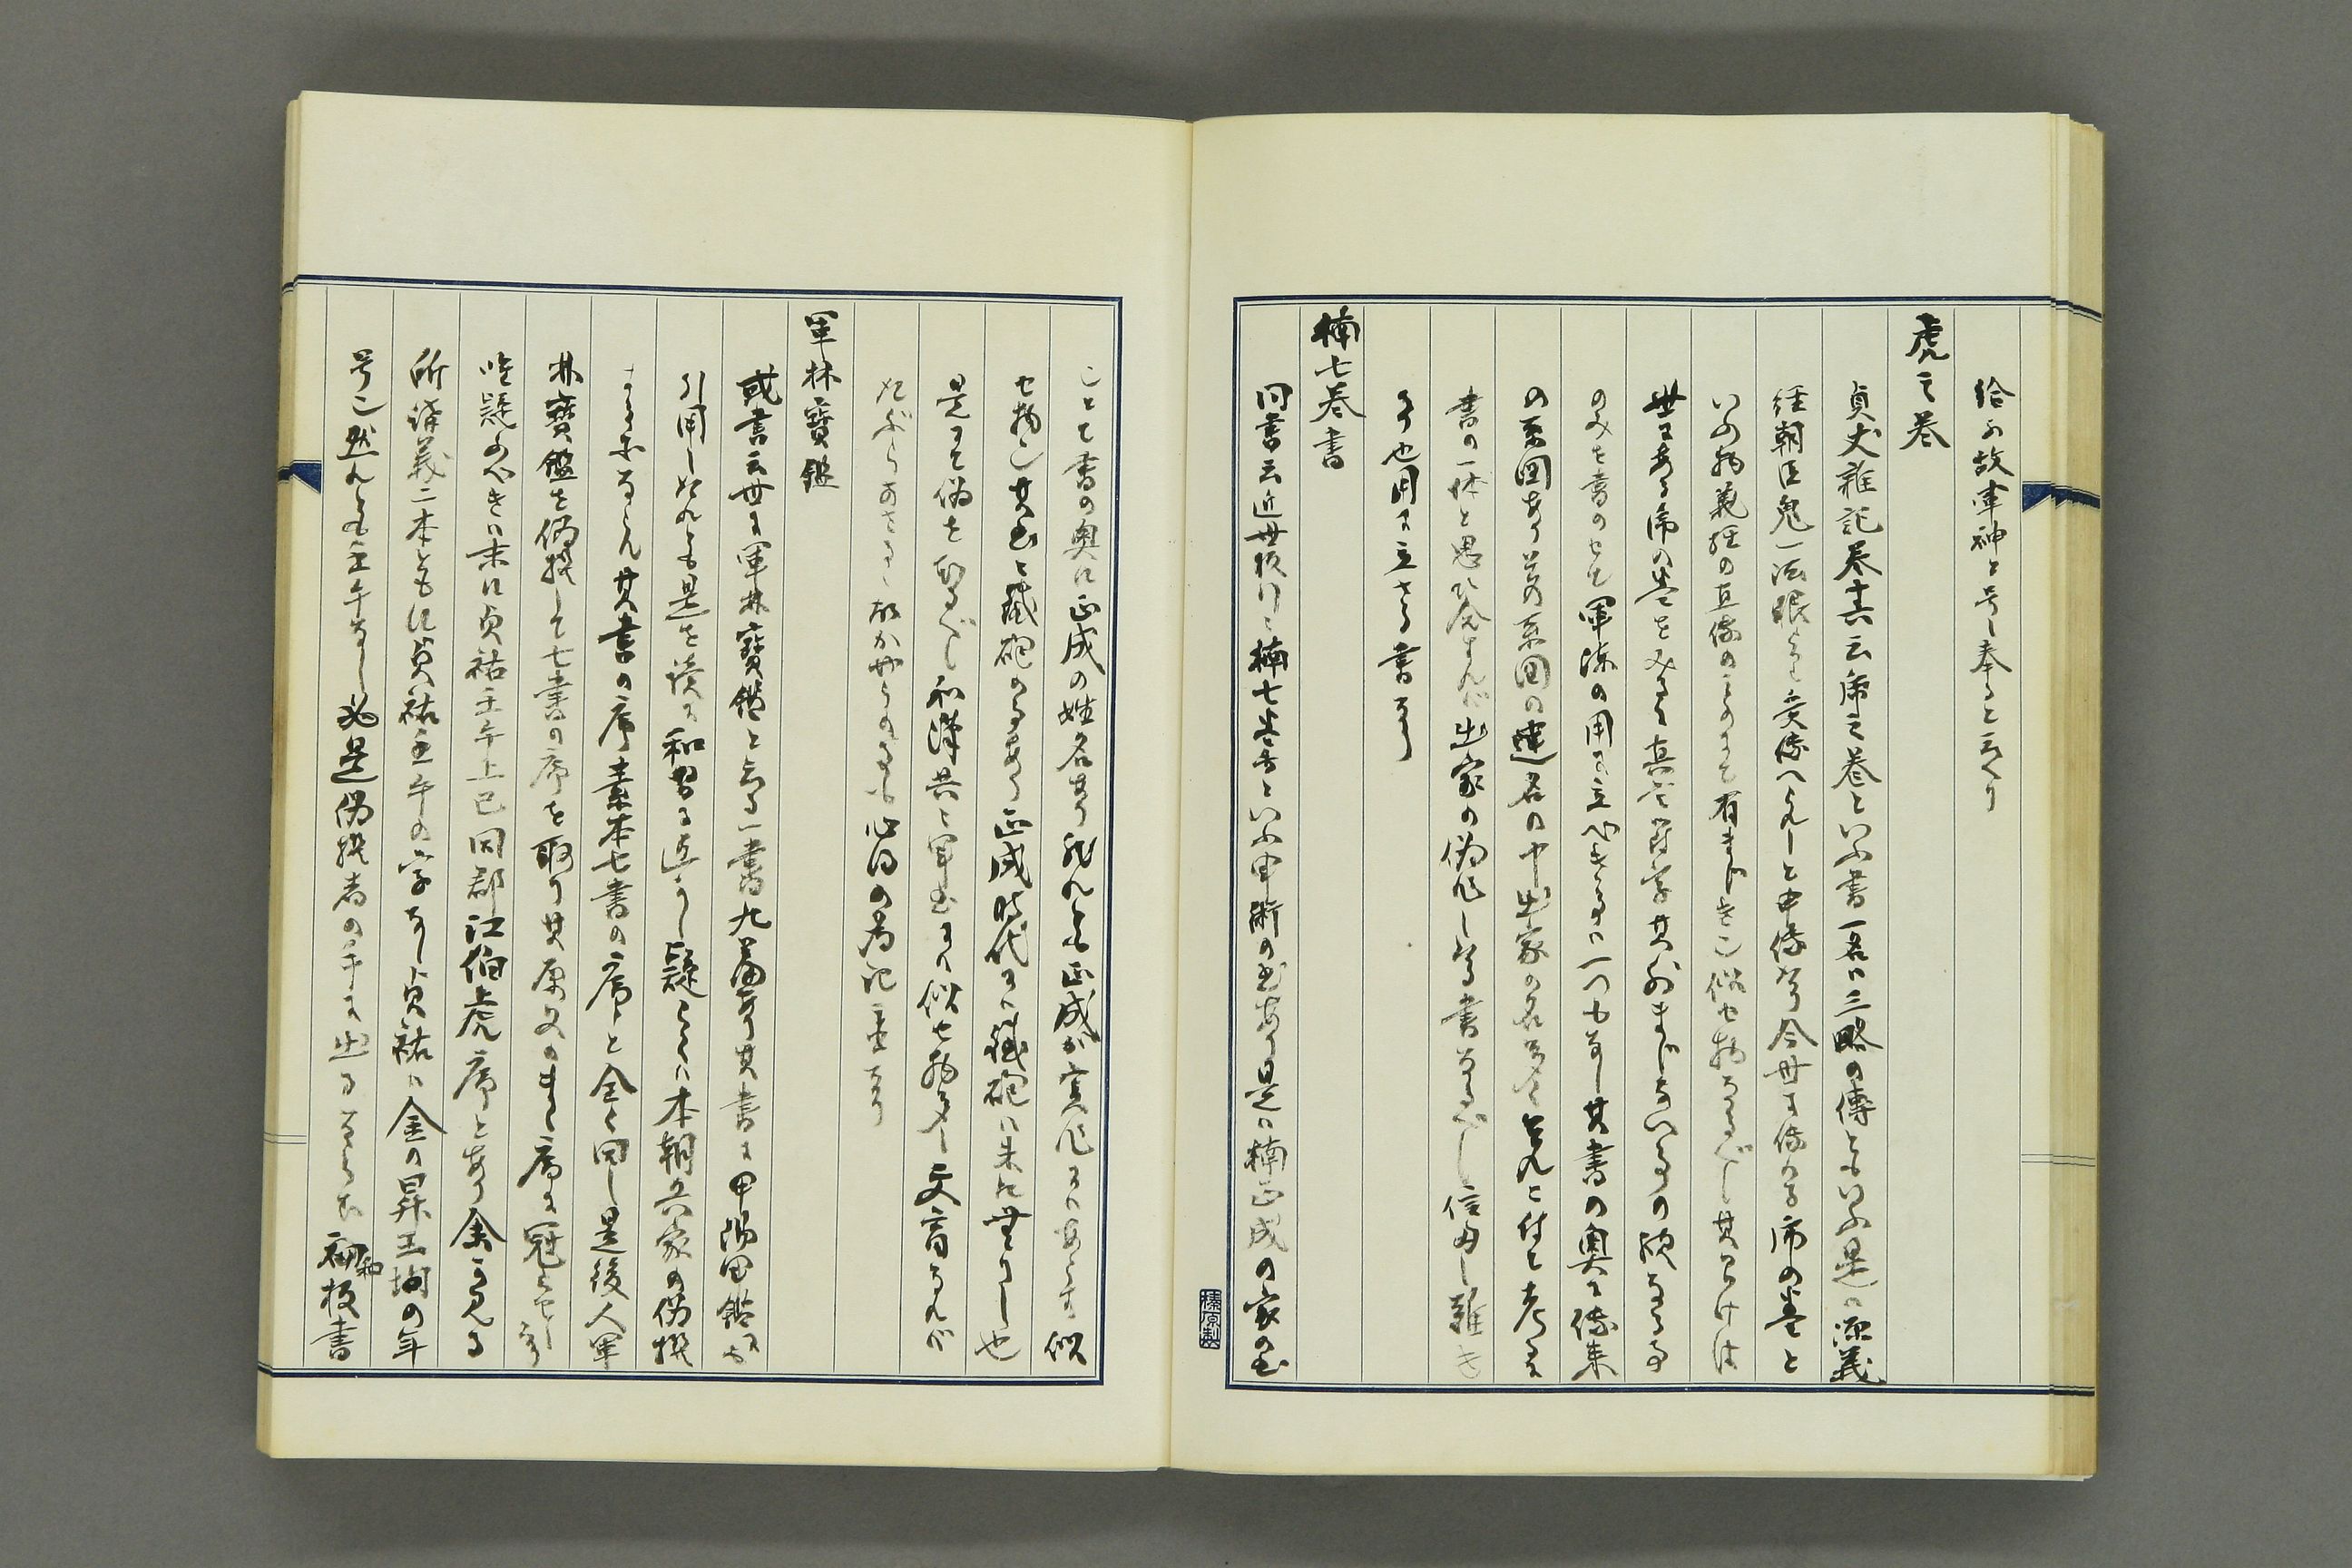 給ふ故軍神と号し奉ると云へり
虎之巻
貞丈雑記巻十六云虎之巻といふ書一名は三略の傳ともいふ是は源義
経朝臣鬼一法眼より受傳へられしと申傳ふ今世に傳る虎の巻と
いふ物義経の直傳のものにて有まじき也似せ物なるべし其わけは
世にある虎の巻をみるに真言符字其外まじないなどの類なる事
のみを書のせて軍陣の用に立べき事は一つもなし其書の奥に傳来
の系図あり其系図の連名の中出家の名多く見えたり付て考るに
書の一体と思ひ合すれば出家の偽作したる書なるべし信用し難き
事也用に立ざる書なり
楠七巻書
同書云近世板行に楠七巻書といふ軍術の書あり是は楠正成の家の書
とて書の奥に正成の姓名あり然れども正成が実作にはあらず似
せ物也其書に鐵砲の事あり正成時代には鐵砲は未だ無きし也
是にて偽を知るべし和漢共に軍書には似せ物多し文盲なれば
たぶらかさるゝ故かやうの事も心得の為記置なり
軍林寶鑑
或書云世に軍林寶鑑と云る一書九篇あり其書に甲陽軍鑑にも
引用したれども是を讀に和習に近うし疑らくは本朝兵家の偽撰
ならむ其書の序素本七書の序と全く同し是後人軍
林寶鑑を偽撰して七書の序を取り其原文のまゝ序に冠らせし
唯疑ふべきは末に貞祐壬午上巳同郡江伯虎序とあり余が見る
所講義二本ともに貞祐壬午の字なし貞祐は金の昇王珣の年
号也然れとも壬午なし必是偽撰者の手に出るならむ初和板書
榛原製